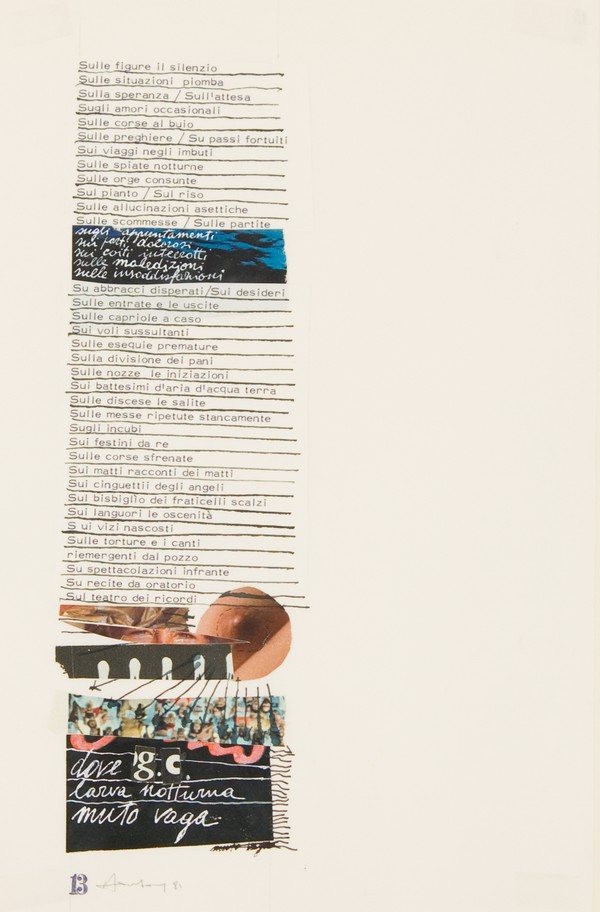 Sulle figure il silenzio
Sulle situazioni piomba
Sulla speranza / Sull'attesa
Sugli amori occasionali
Sulle corse al buio
Sulle preghiere / Su passi fortuiti
Sui viaggi negli imbuti
Sulle spiate notturne
Sulle orge consunte
Sul pianto / Sul riso
Sulle allucinazioni asettiche
Sulle scommesse / Sulle partite
sugli appuntamenti
sui parti dolorosi
sui coiti interrotti
sulle maledizioni
sulle insoddisfazioni
Su abbracci disperati/Sui desideri
Sulle entrate e le uscite
Sulle capriole a caso
Sui voli sussultanti
Sulle esequie premature
Sulla divisione dei pani
Sulle nozze le iniziazioni
Sui battesimi d'aria d'acqua terra
Sulle discese le salite
Sulle messe ripetute stancamente
Sugli incubi
Sui festini da re
Sulle corse sfrenate
Sui matti racconti dei matti
Sui cinguettii degli angeli
Sul bisbiglio dei fraticelli scalzi
Sui languori le oscenità
S ui vizi nascosti
Sulle torture e i canti
riemergenti dal pozzo
Su spettacolazioni infrante
Su recite da oratorio
Sul teatro dei ricordi
dove g.c.
larva notturna
muto vaga
muto vaga
13